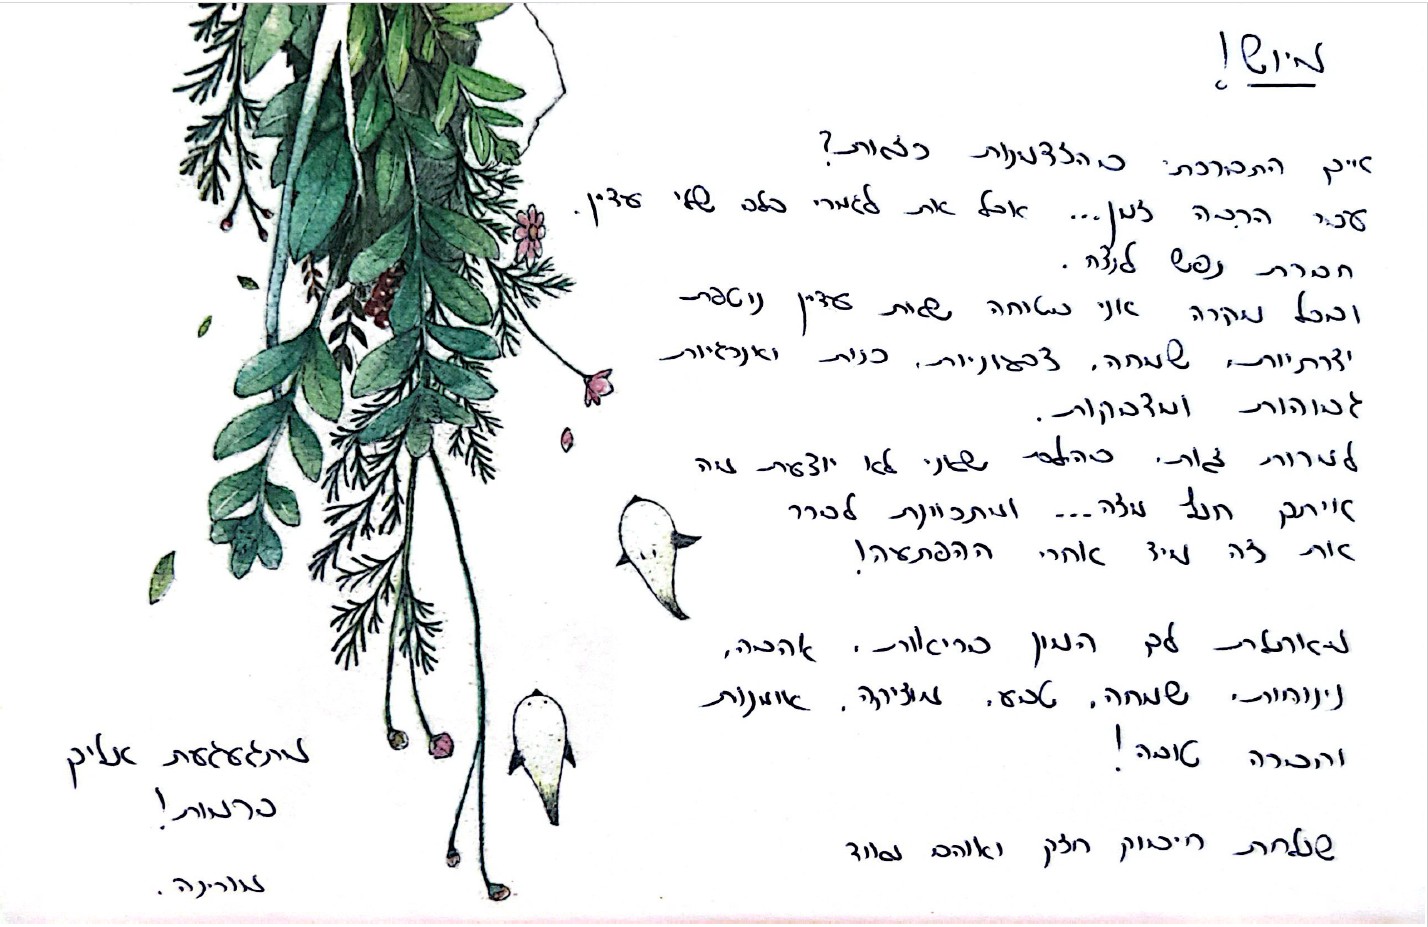 מיוש!
איך התברכתי בהזדמנות כזאת?
עבר הרבה זמן... אבל את לגמרי בלב שלי עדיין.
חברת נפש לנצח.
ובכל מקרה אני בטוחה שאת עדיין נוטפת
יצרתיות, שמחה, צבעוניות, כנות ואנרגיות
גבוהות ומדבקות.
למרות זאת, בהלם שאני לא יודעת מה
איתך חוץ מזה... ומתכוונת לברר
את זה מיד אחרי ההפתעה!
מאחלת לך המון בריאות, אהבה,
נינוחות, שמחה, טבע, מוזיקה, אומנות
וחברה טובה!
שולחת חיבוק חזק ואוהב מאוד
מתגעגעת אליך
ברמות!
מורינה.